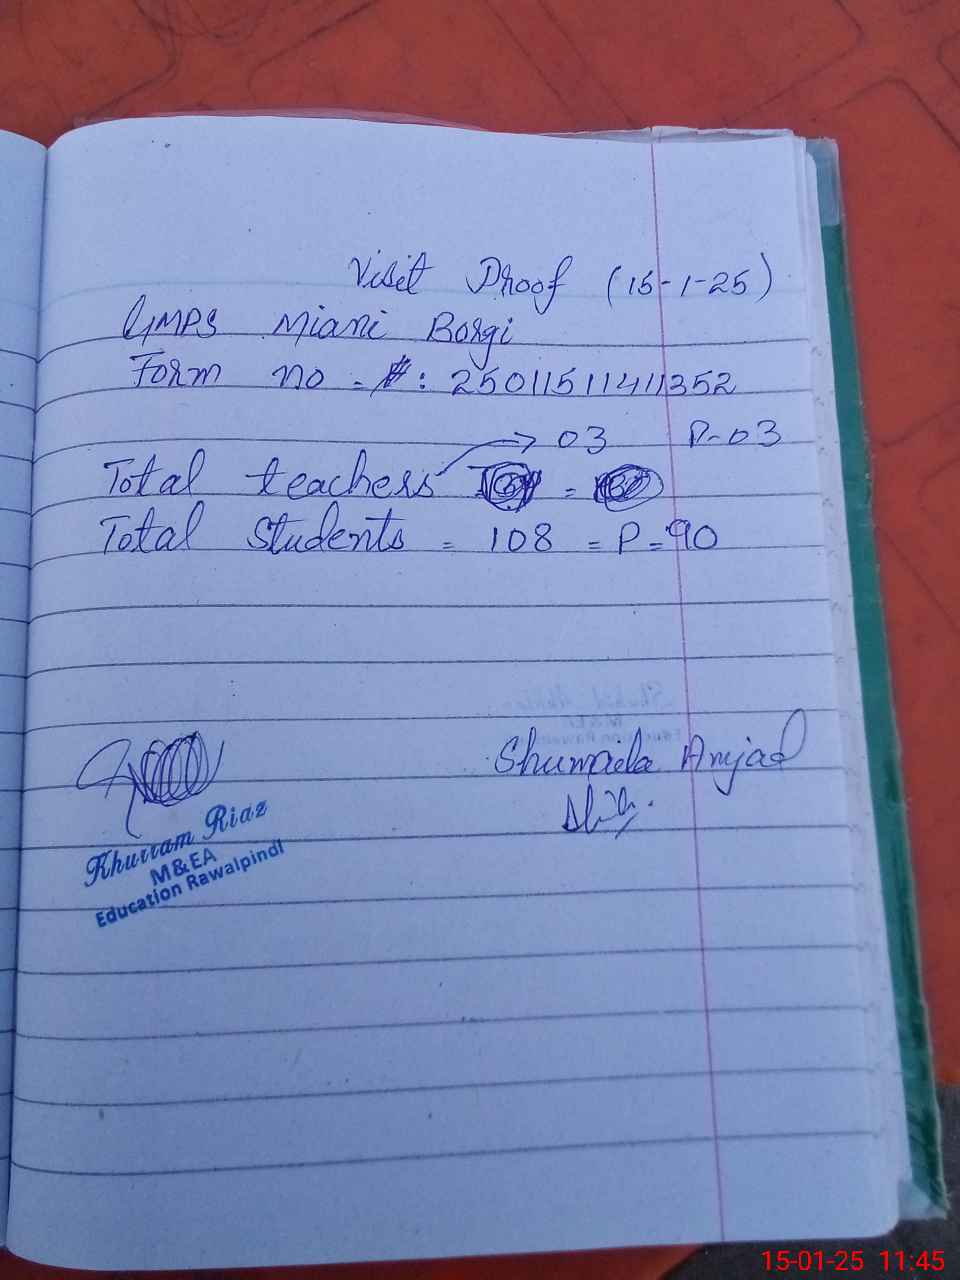 Visit Proof (15-1-25)
GMPS Miani Borgi
Form no - #: 25011511411352
→ 03 P-03
Total teachers =
Total Students = 108 = P=90
Shumaila Amjad
Khurram Riaz
M&EA
Education Rawalpindi
15-01-25 11:45